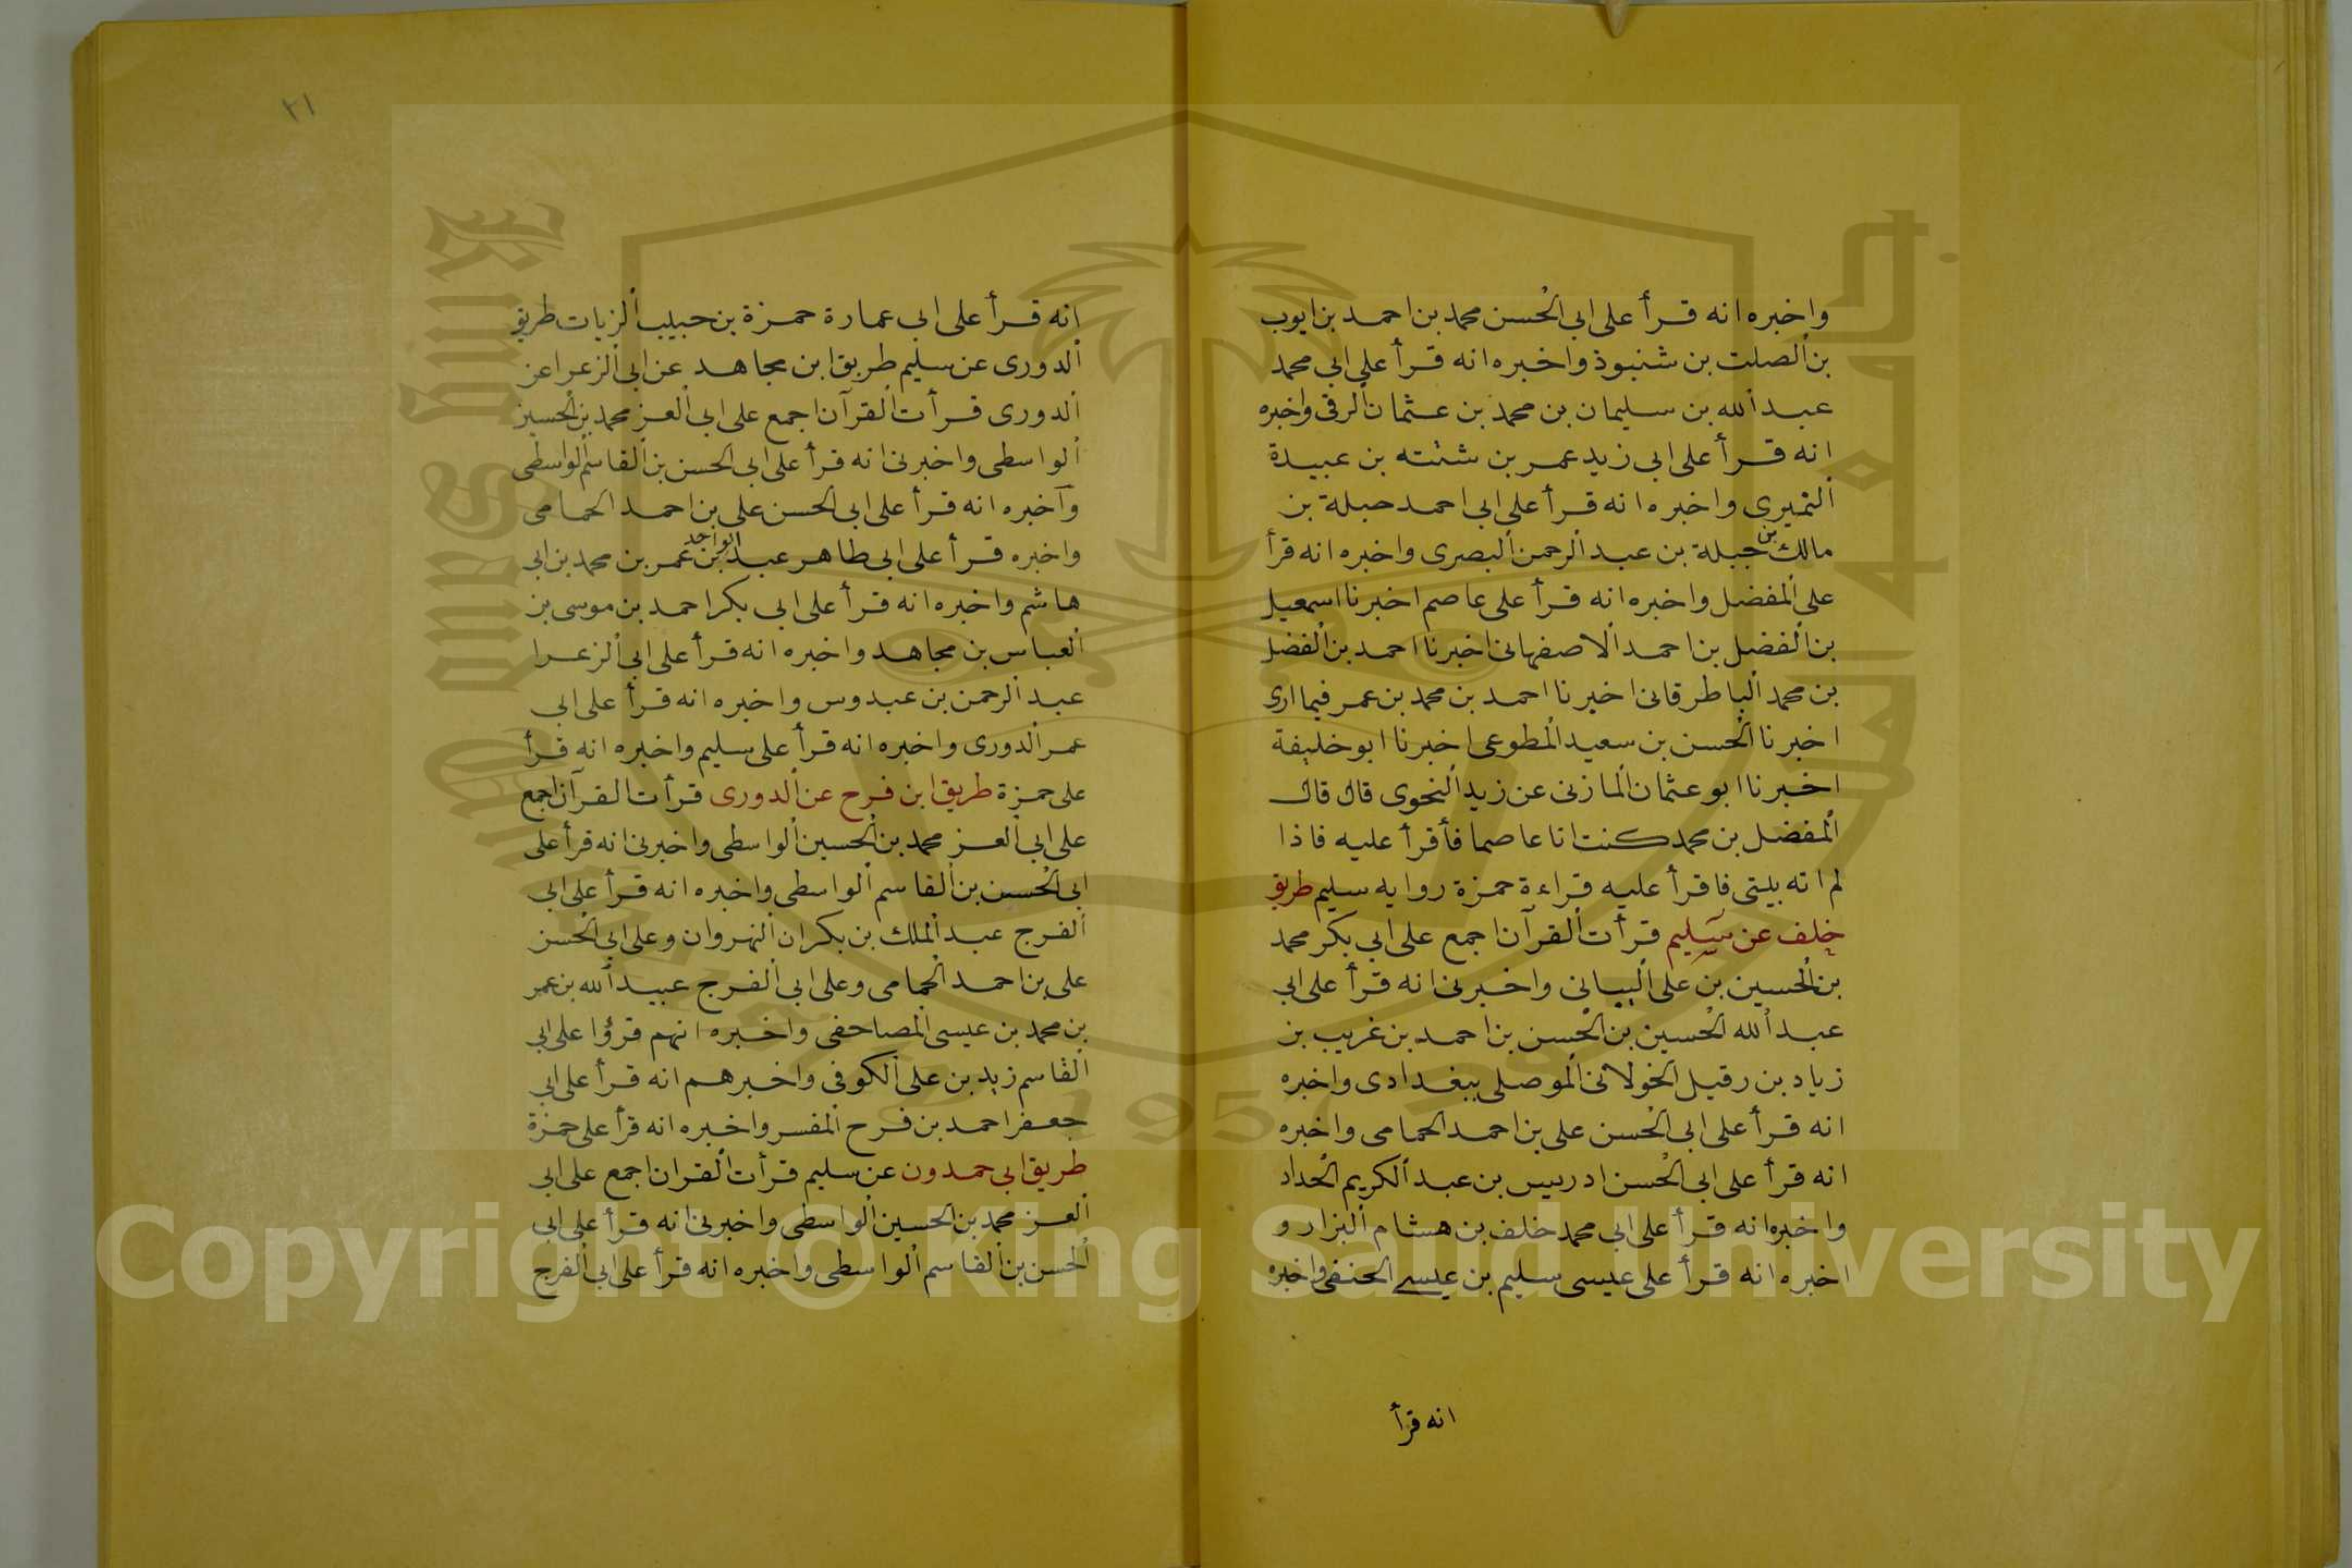 واخبره انه قرأ على ابي الحسن محمد بن احمد بن ايوب
بن الصلت بن شنبوذ واخبره انه قرأ على ابي محمد
عبد الله بن سليمان بن محمد بن عثمان الرقى واخبره
انه قرأ على ابى زيد عمر بن شته بن عبيدة
التميرى واخبره انه قرأ على ابى احمد حبلة بن
مالك بن جبلة بن عبد الرحمن البصرى واخبره انه قرأ
على المفضل واخبره انه قرأ على عاصم اخبرنا اسمعيل
بن الفضل بن احمد الاصفهانى اخبرنا احمد بن الفضل
بن محمد الباطرقانى اخبرنا احمد بن محمد بن عمر فيما ارى
اخبرنا الحسن بن سعيد المطوعى اخبرنا ابو خليفة
اخبرنا ابو عثمان المازنى عن زيد النحوى قال قال
المفضل بن محمد كنت انا عاصما فأقرأ عليه فاذا
لم اته بيتى فاقرأ عليه قراءة حمزة روايه سليم طريق
خلف عن سليم قرأت القرآن اجمع على ابي بكر محمد
بن الحسين بن على البيانى واخبرنى انه قرأ على ابي
عبد الله الحسين بن الحسن بن احمد بن غريب بن
زياد بن رقيل الخولانى الموصلى ببغدادى واخبره
انه قرأ على ابى الحسن على بن احمد الحمامى واخبره
انه قرأ على ابى الحسن ادريس بن عبد الكريم الحداد
واخبره انه قرأ على ابي محمد خلف بن هشام البزار و
اخبره انه قرأ على عيسى سليم بن عيسى الحنفى واخبره
انه قرأ
٢١
انه قرأ على ابي عمارة حمزة بن حبيب الزيات طريق
الدورى عن سليم طريق ابن مجاهد عن ابى الزعرا عن
الدورى قرأت القرآن اجمع على ابى العز محمد بن الحسين
الواسطى واخبرنى انه قرأ على ابى الحسن بن القاسم الواسطى
وآخبره انه قرأ على ابى الحسن على بن احمد الحمامى
واخبره قرأ على ابى طاهر عبد الواحد بن عمر بن محمد بن ابى
هاشم واخبره انه قرأ على ابى بكر احمد بن موسى بن
العباس بن مجاهد واخبره انه قرأ على ابى الزعرا
عبد الرحمن بن عبدوس واخبره انه قرأ على ابى
عمر الدورى واخبره انه قرأ على سليم واخبره انه قرأ
على حمزة طريق ابن فرح عن الدورى قرأت القرآن اجمع
على ابى العز محمد بن الحسين الواسطى واخبرنى انه قرأ على
ابى الحسن بن القاسم الواسطى واخبره انه قرأ على ابى
الفرج عبد الملك بن بكران النهروان وعلى ابى الحسن
على بن احمد الحمامى وعلى ابى الفرج عبيد الله بن عمر
بن محمد بن عيسى المصاحفى واخبره انهم قرؤا على ابى
القاسم زيد بن على الكوفى واخبرهم انه قرأ على ابى
جعفر احمد بن فرح المفسر واخبره انه قرأ على حمزة
طريق ابى حمدون عن سليم قرأت القران اجمع على ابى
العز محمد بن الحسين الواسطى واخبرنى انه قرأ على ابى
الحسن بن القاسم الواسطى واخبره انه قرأ على ابى الفرج
Copyright © King Saud University
1957